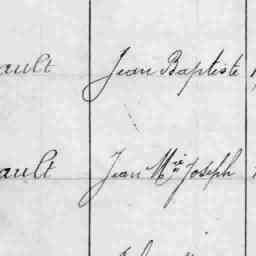 ault Jean Baptiste
ault Jean Mie Joseph